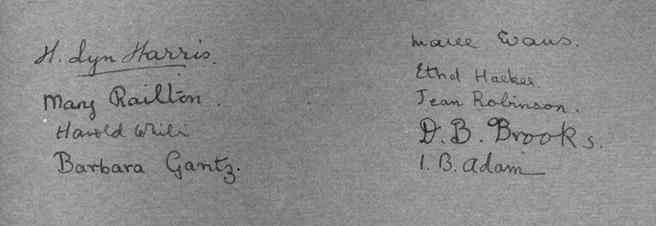 H. Lyn Harris.
Mary Railton.
Harold
Barbara Gantz.
Evans.
Ethel
Jean Robinson.
D. B. Brooks.
I. B. Adam